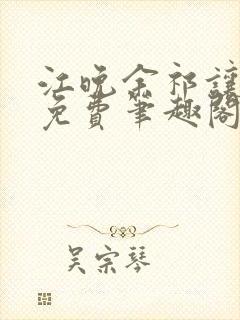 江晚余祁让
免费笔趣阁
吴宗琴